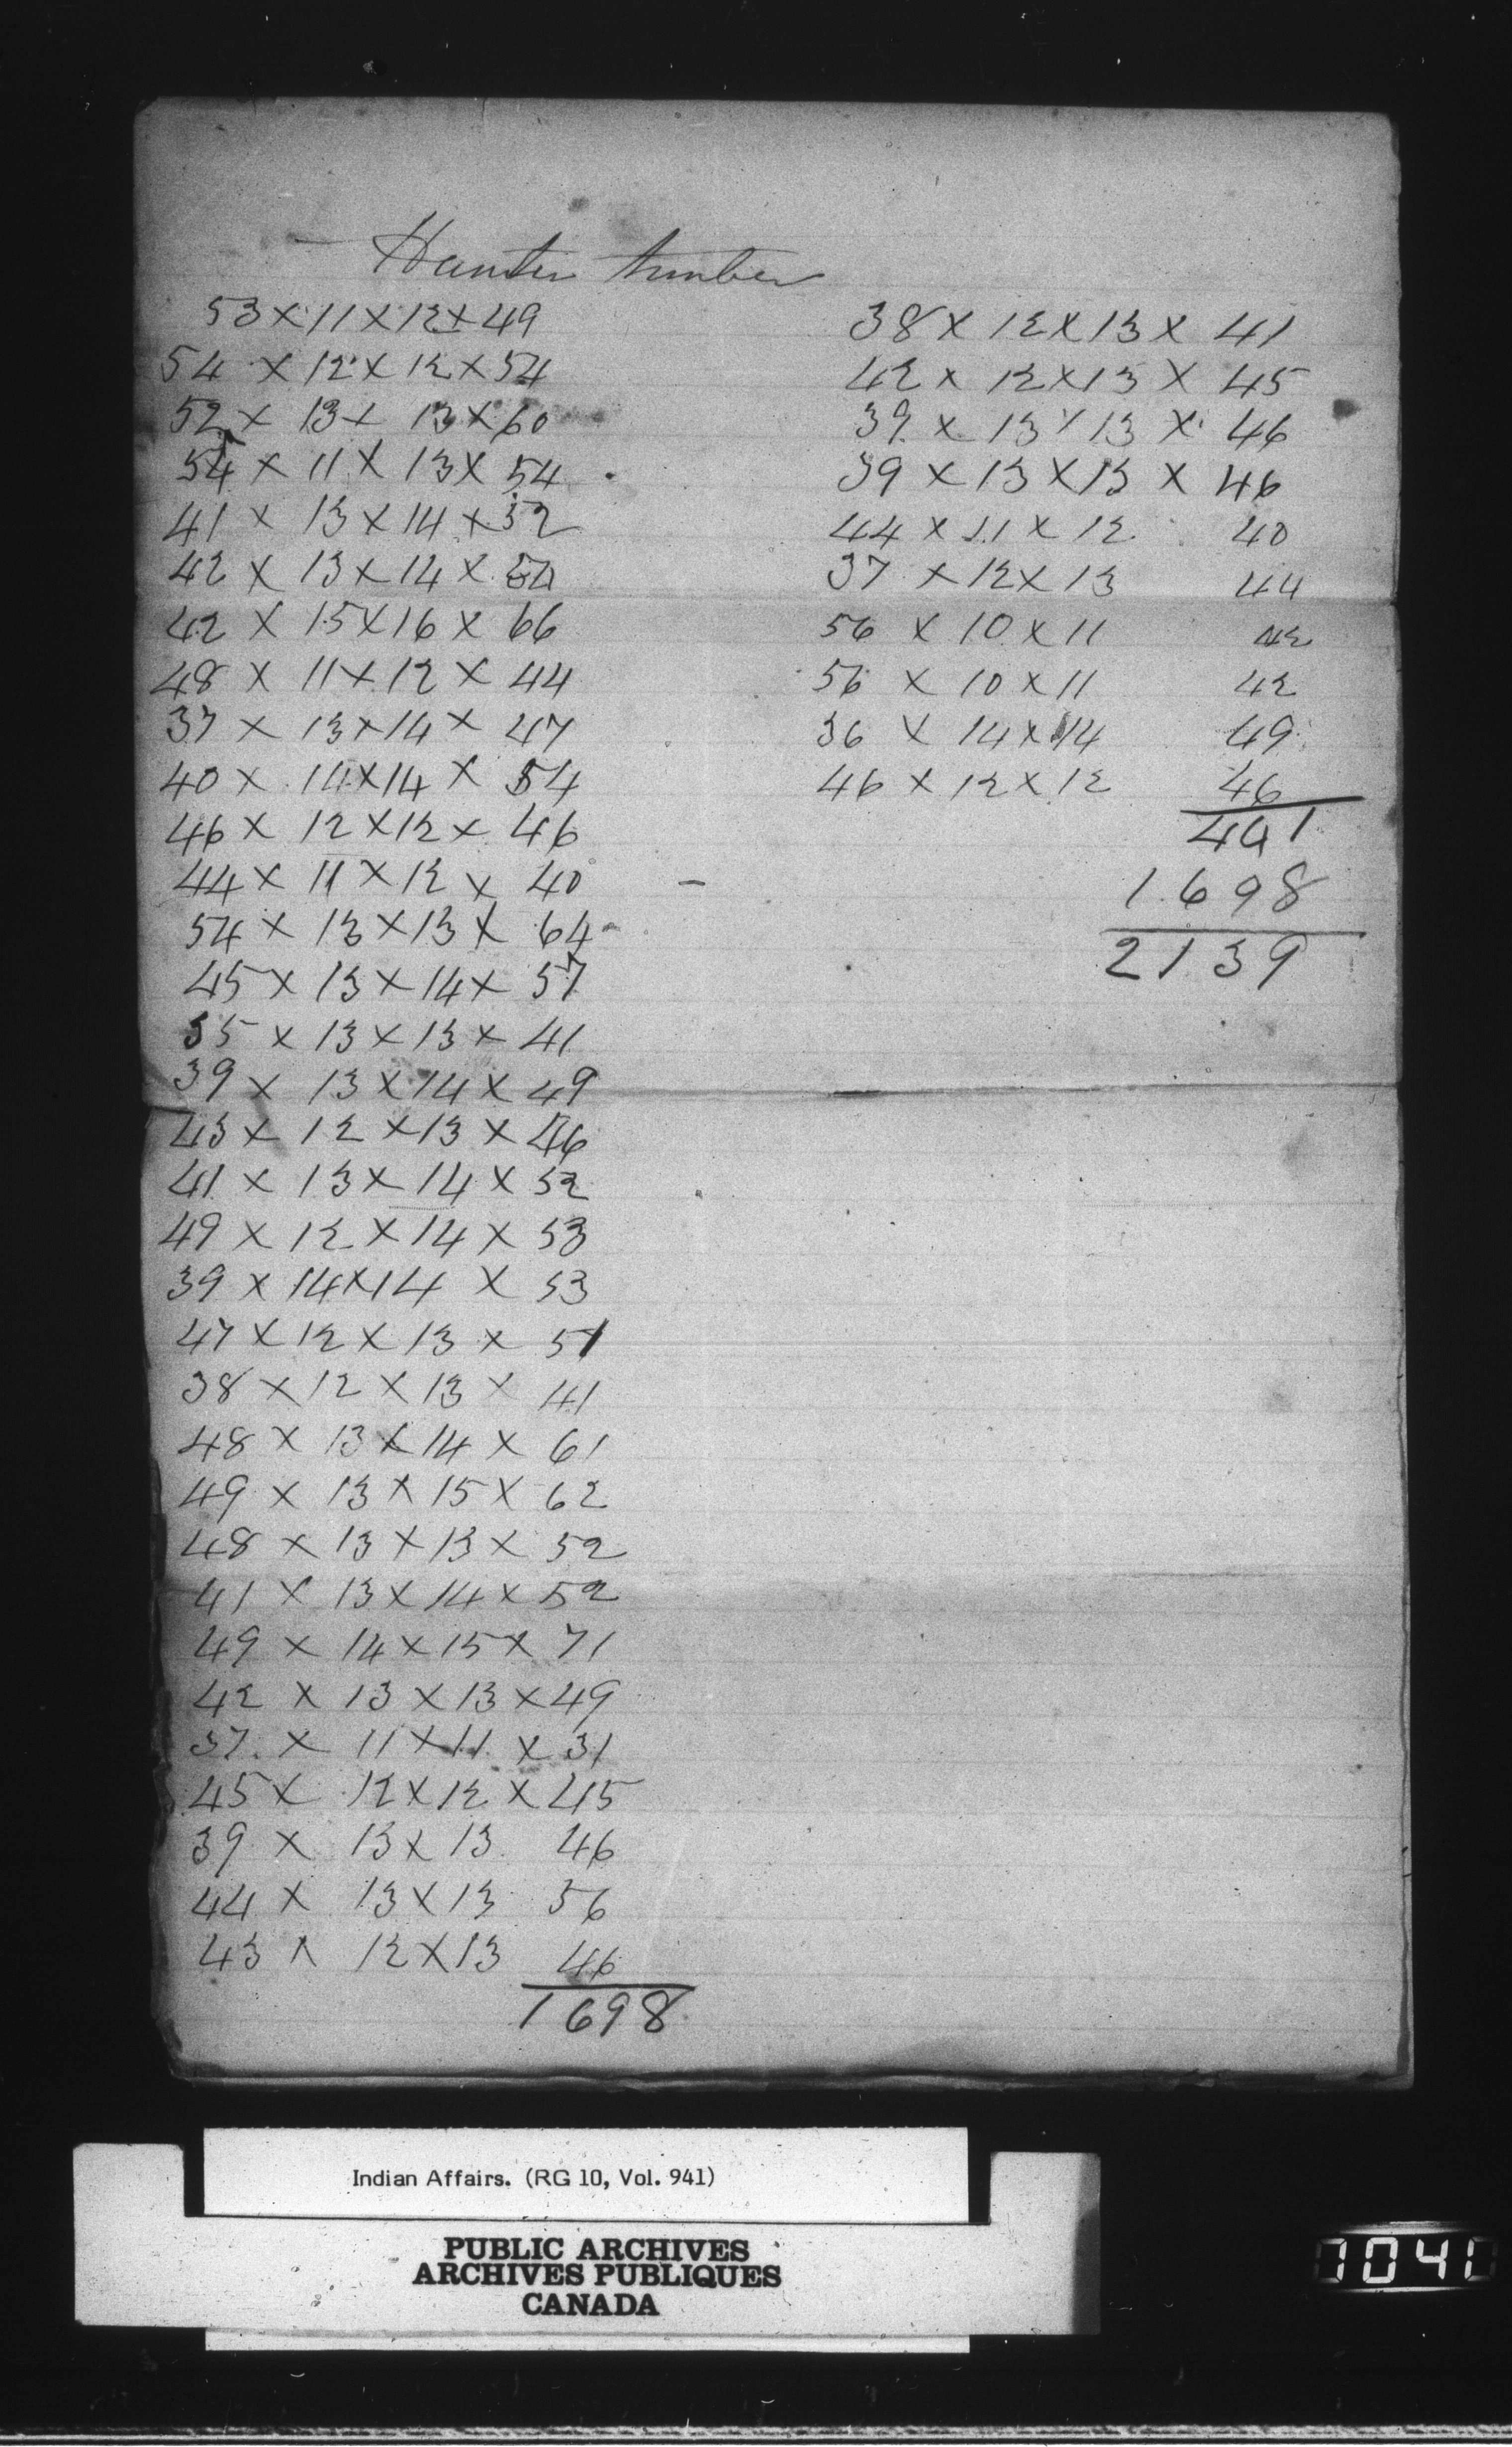 timber
53 × 11 × 12 × 49
54 × 12 × 12 × 54
52 × 13 × 13 × 60
54 × 11 × 13 × 54
41 × 13 × 14 × 52
42 × 13 × 14 × 54
42 × 15 × 16 × 66
48 × 11 × 12 × 44
37 × 13 × 14 × 47
40 × 14 × 14 × 54
46 × 12 × 12 × 46
44 × 11 × 12 × 40
54 × 13 × 13 × 64
45 × 13 × 14 × 57
35 × 13 × 13 × 41
39 × 13 × 14 × 49
43 × 12 × 13 × 46
41 × 13 × 14 × 52
49 × 12 × 14 × 53
39 × 14 × 14 × 53
47 × 12 × 13 × 51
38 × 12 × 13 × 41
48 × 13 × 14 × 61
49 × 13 × 15 × 62
48 × 13 × 13 × 52
41 × 13 × 14 × 52
49 × 14 × 15 × 71
42 × 13 × 13 × 49
37 × 11 × 11 × 31
45 × 12 × 12 × 45
39 × 13 × 13 46
44 × 13 × 13 56
43 × 12 × 13 46
1698
38 × 12 × 13 × 41
42 × 12 × 13 × 45
39 × 13 × 13 × 46
39 × 13 × 13 × 46
44 × 11 × 12 40
37 × 12 × 13 44
56 × 10 × 11 42
56 × 10 × 11 42
36 × 14 × 14 49
46 × 12 × 12 46
441
1698
2139
Indian Affairs. (RG 10, Vol. 941)
PUBLIC ARCHIVES
ARCHIVES PUBLIQUES
CANADA
1041